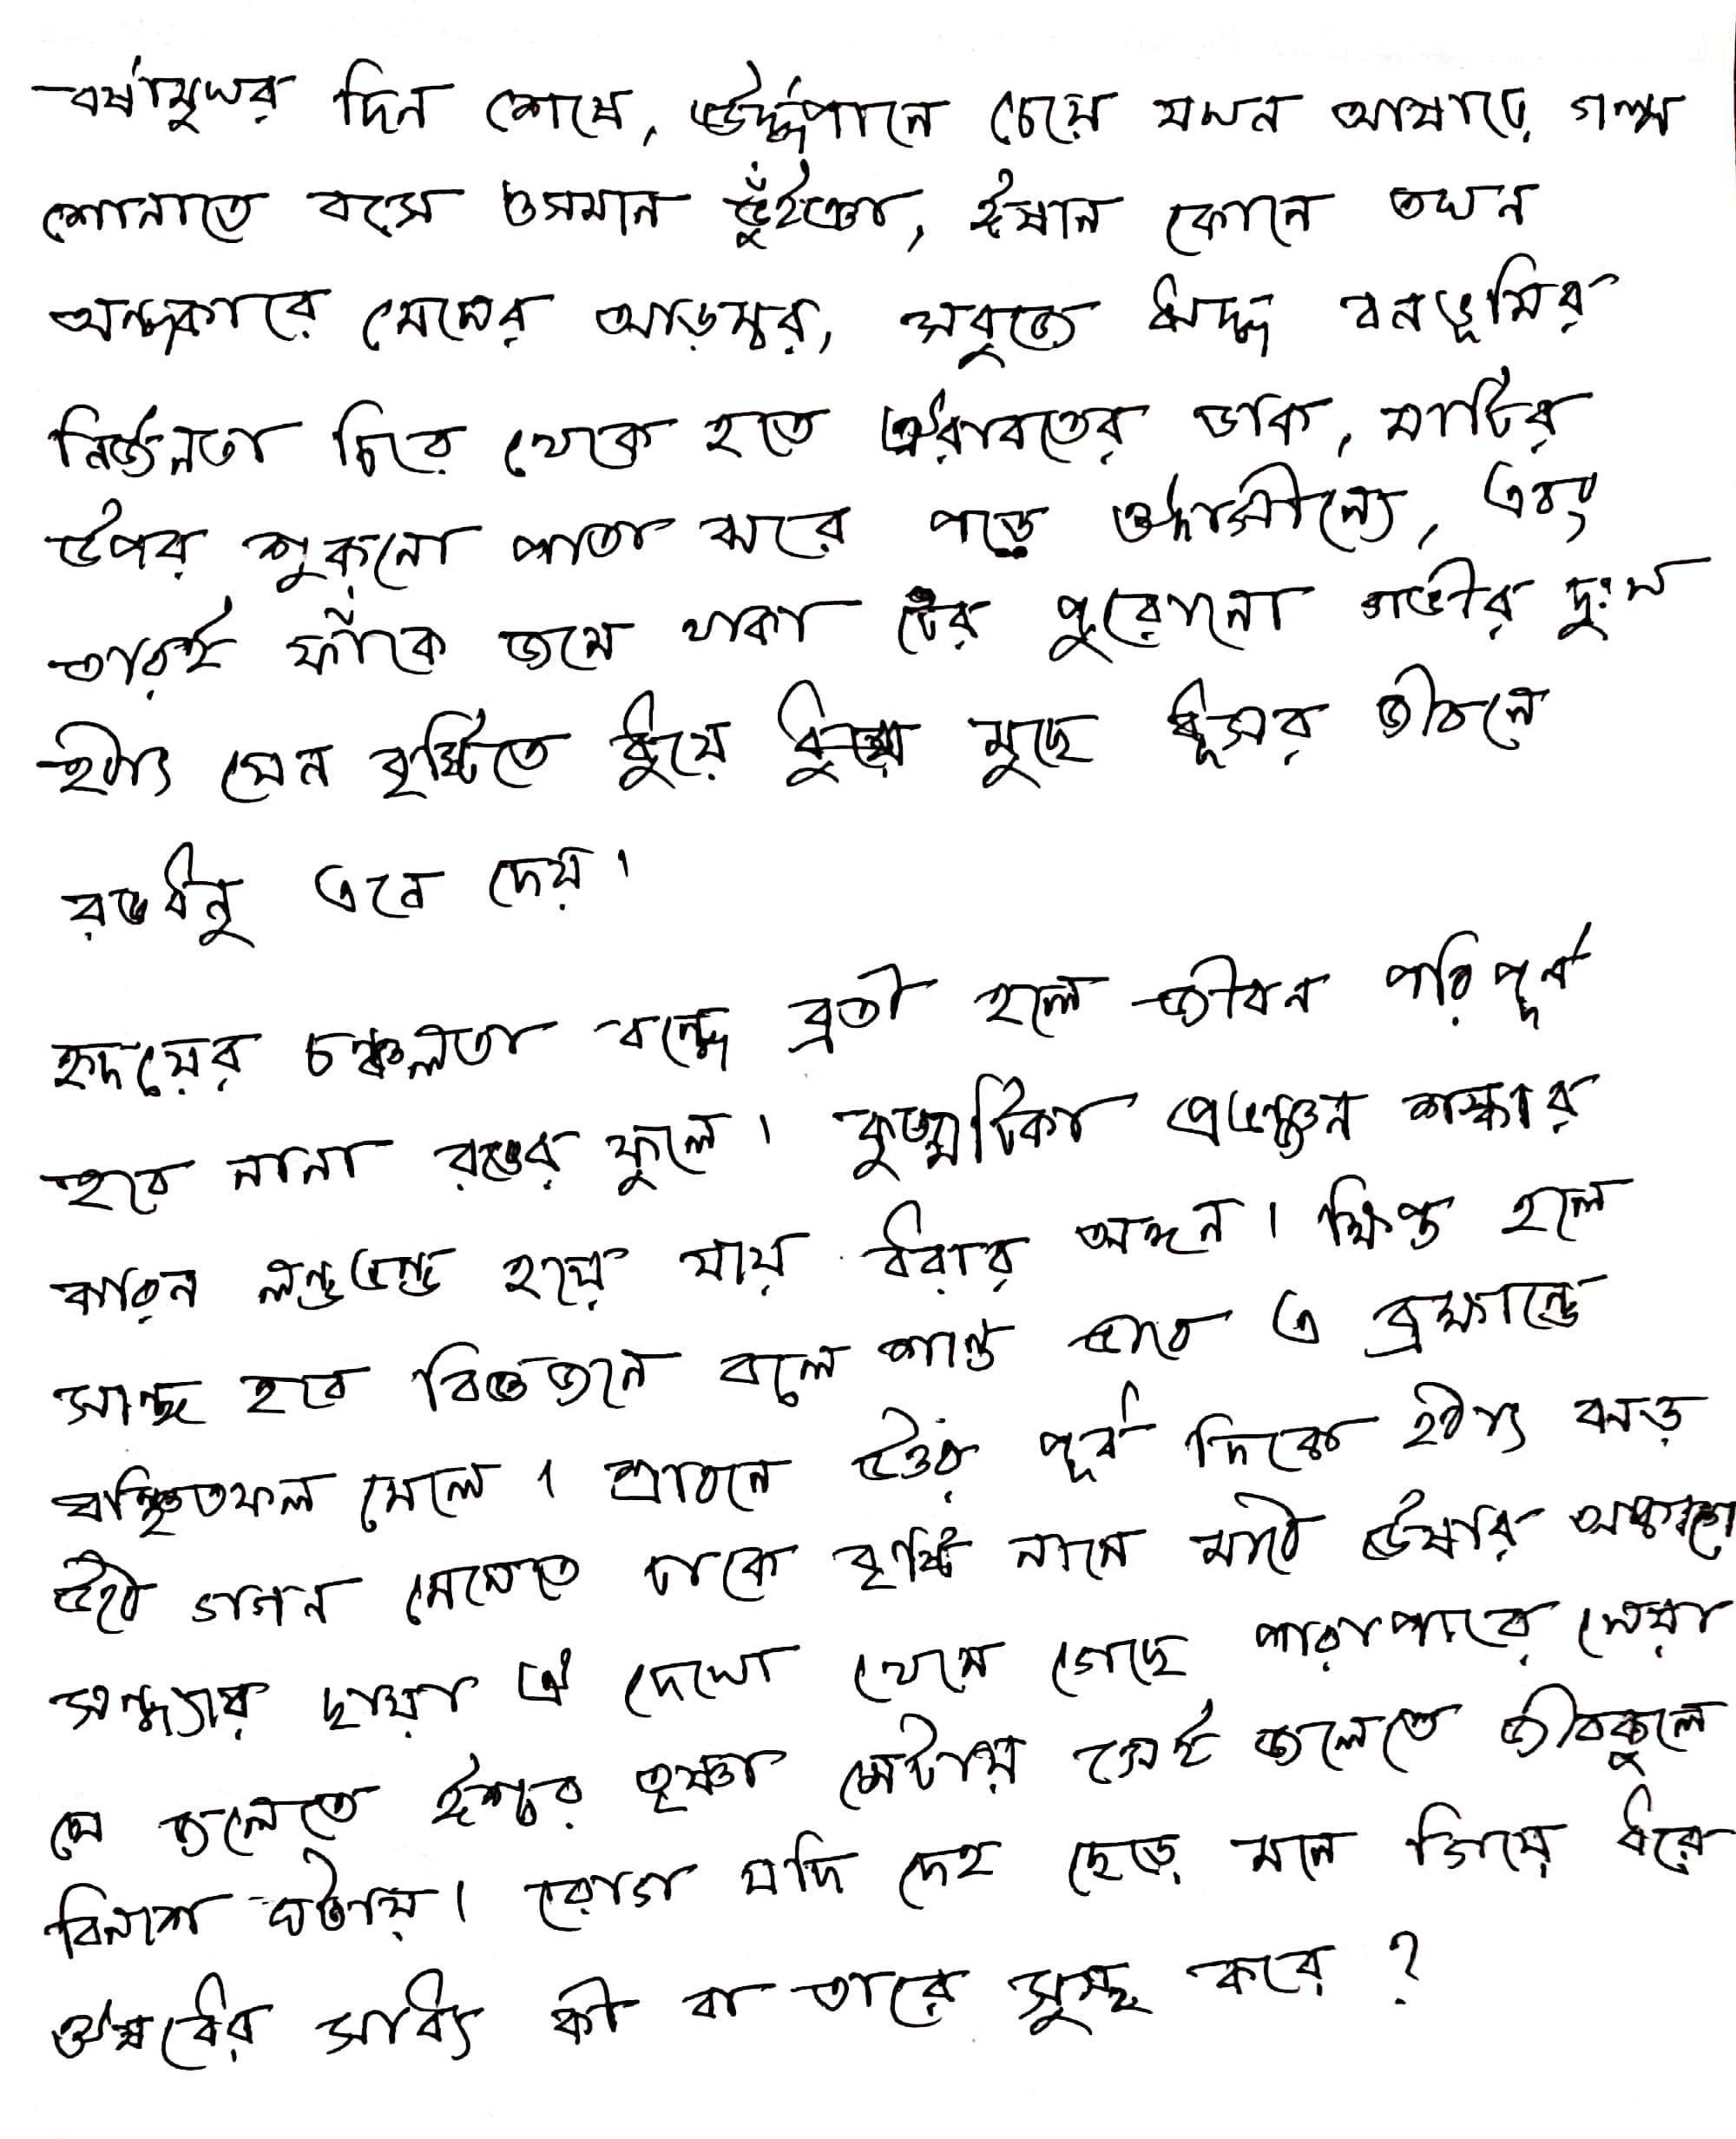 বর্ষামুখর দিন শেষে, ঊর্দ্ধপানে চেয়ে যখন আষাঢ়ে গল্প
শোনাতে বসে ওসমান ভুঁইঞা, ঈষান কোনে তখন
অন্ধকারে মেঘের আড়ম্বর, সবুজে ঋদ্ধ বনভূমির
নির্জনতা চিরে থেকে হতে ঐরাবতের ডাক, মাটির
উপর শুকনো পাতা ঝরে পড়ে ঔদাসীন্যে, এবং
তারই ফাঁকে জমে থাকা ঢের পুরোনো গভীর দুঃখ
হঠাৎ যেন বৃষ্টিতে ধুয়ে মুছে ধূসর জীবনে
রঙধনু এনে দেয়।
হৃদয়ের চঞ্চলতা বন্ধে ব্রতী হলে জীবন পরিপূর্ণ
হবে নানা রঙের ফুলে। কুজ্ঝটিকা প্রভঞ্জন শঙ্কার
কারন লণ্ডভণ্ড হয়ে যায় ধরার অঙ্গন। ক্ষিপ্ত হলে
সাঙ্গ হবে বিজ্ঞজনে বলে শান্ত হলে এ ব্রহ্মাণ্ডে
বাঞ্ছিতফল মেলে। শ্রাবনে উত্তর পূর্ব দিকে হঠাৎ ঝড়
উঠে গগন মেঘেতে ঢাকে বৃষ্টি নামে মাঠে ঊষার আকাশে
সন্ধ্যার ছায়া ঐ দেখো থেমে গেছে পারাপারে খেয়া
যে জলেতে ঈশ্বর তৃষ্ণা মেটায় সেই জলেতে জীবকুলে
বিনাশ ঘটায়। রোগ যদি দেহ ছেড়ে মনে গিয়ে ধরে
ঔষধের সাধ্যি কী বা তারে সুস্থ করে ?